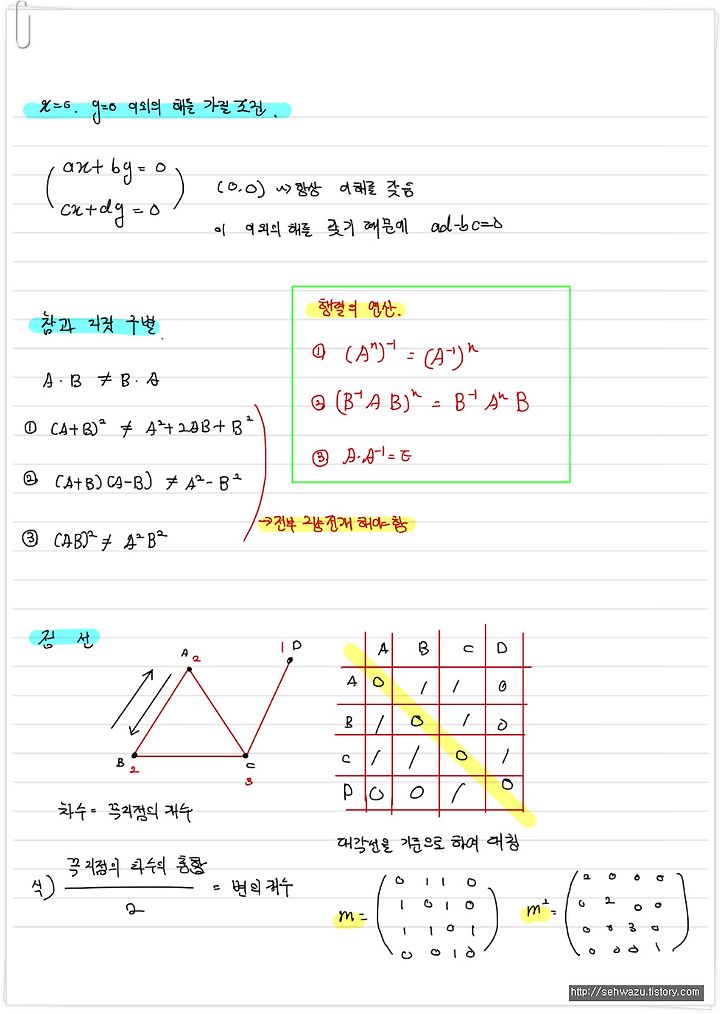 x=0. y=0 이외의 해를 가질 조건.
ax+by=0
cx+dy=0
(0,0) → 항상 이해를 갖음
이 이외의 해를 갖기 때문에 ad-bc=0
참과 거짓 구별.
A·B ≠ B·A
① (A+B)² ≠ A²+2AB+B²
② (A+B)(A-B) ≠ A²-B²
③ (AB)² ≠ A²B²
→전부 그냥 전개 해야함
행렬의 연산.
① (Aⁿ)⁻¹ = (A⁻¹)ⁿ
② (B⁻¹AB)ⁿ = B⁻¹AⁿB
③ A·A⁻¹=E
점 선
A 2
1 D
B 2
C 3
차수= 꼭지점의 개수
식) 꼭지점의 차수의 총합 / 2 = 변의 개수
A B C D
A 0 1 1 0
B 1 0 1 0
C 1 1 0 1
D 0 0 1 0
대각선을 기준으로 하여 대칭
m=
0 1 1 0
1 0 1 0
1 1 0 1
0 0 1 0
m²=
2 0 0 0
0 2 0 0
0 0 3 0
0 0 0 1
http://sehwazu.tistory.com